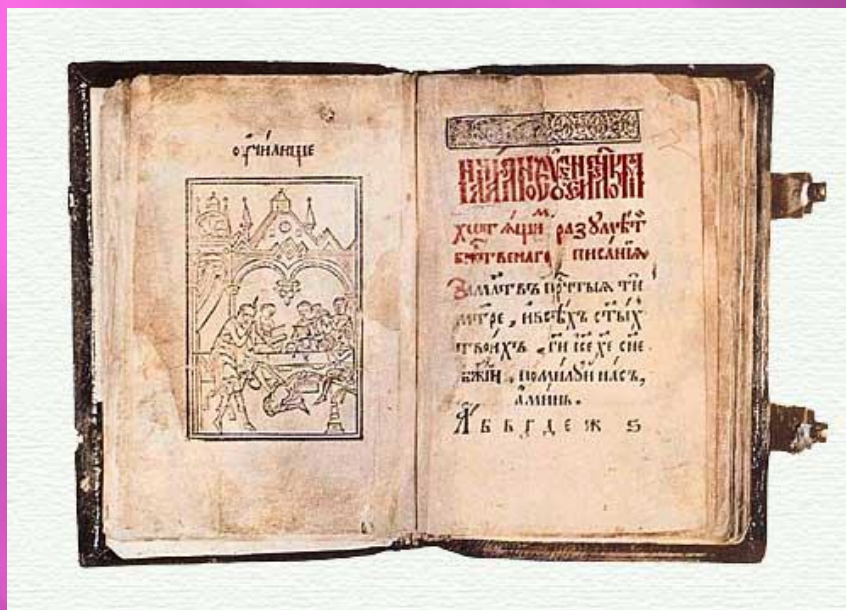 ѹчи́лище
хотѧ́щиⷨ разꙋмѣ́т
бжⷭ҇твенаго писа́нїѧ
За млт҃въ прⷱ҇тыѧ ти
мт҃ре, и всѣ́хъ ст҃ы́хъ
твои́хъ, ги҃ і҃се х҃е сн҃е
бж҃їи, поми́лꙋи на́съ,
а҆ми́нь.
А҆ б в г д е ж ѕ